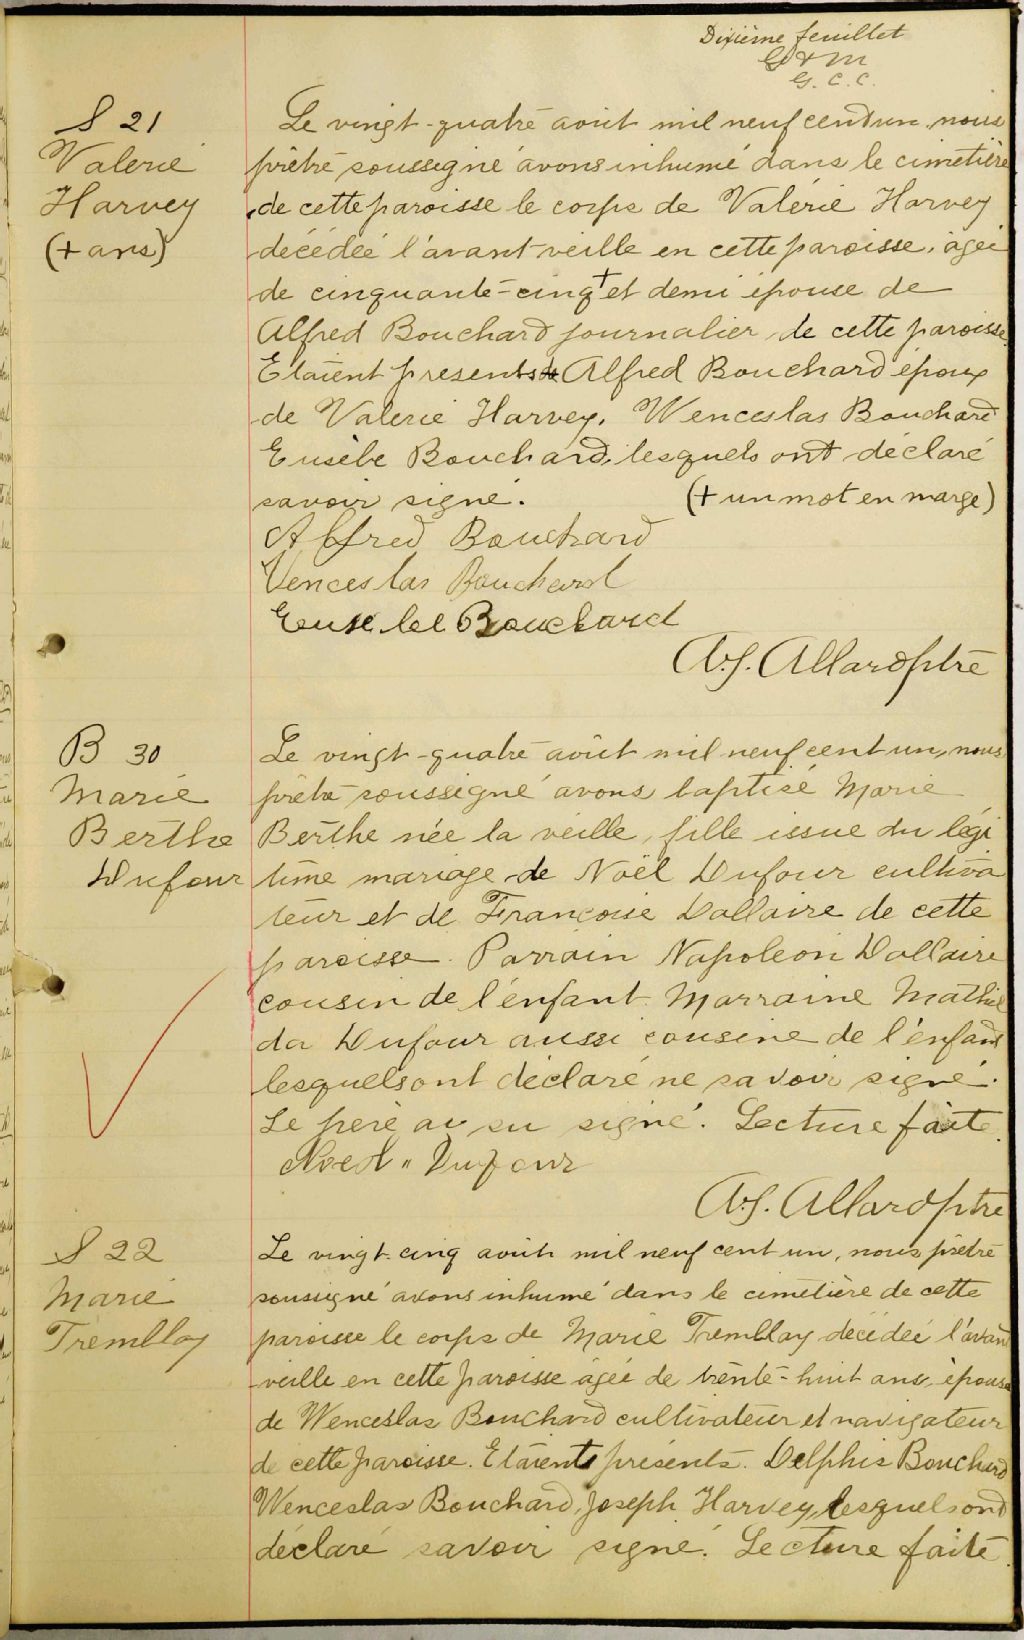 Dixième feuillet
G & M
G. C. C.
S 21
Valérie
Harvey
(+ ans)
Le vingt-quatre août mil neuf cent un, nous
prêtre soussigné avons inhumé dans le cimetière
de cette paroisse le corps de Valérie Harvey
décédée l'avant-veille en cette paroisse, âgée
de cinquante-cinq + et demi épouse de
Alfred Bouchard journalier de cette paroisse.
Etaient présents Alfred Bouchard époux
de Valérie Harvey, Wenceslas Bouchard
Eusèbe Bouchard, lesquels ont déclaré
savoir signé. (+ un mot en marge)
Alfred Bouchard
Venceslas Bouchard
Eusebe Bouchard
A.J. Allard ptre
B 30
Marie
Berthe
Dufour
Le vingt-quatre août mil neuf cent un, nous
prêtre soussigné avons baptisé Marie
Berthe née la veille, fille issue du légi
time mariage de Noël Dufour cultiva
teur et de Françoise Dallaire de cette
paroisse. Parrain Napoléon Dallaire
cousin de l'enfant. Marraine Mathil
da Dufour aussi cousine de l'enfant
lesquels ont déclaré ne savoir signé.
Le père a su signé. Lecture faite.
Noel Dufour
A.J. Allard ptre
S 22
Marie
Tremblay
Le vingt-cinq août mil neuf cent un, nous prêtre
soussigné avons inhumé dans le cimetière de cette
paroisse le corps de Marie Tremblay décédée l'avant
-veille en cette paroisse âgée de trente-huit ans, épouse
de Wenceslas Bouchard cultivateur et navigateur
de cette paroisse. Etaient présents. Delphis Bouchard
Wenceslas Bouchard, Joseph Harvey, lesquels ont
déclaré savoir signé. Lecture faite.